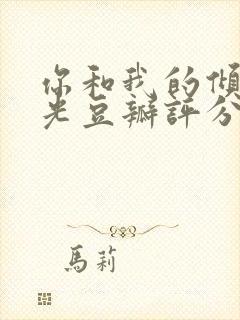 你和我的倾
光豆瓣评分
馬莉